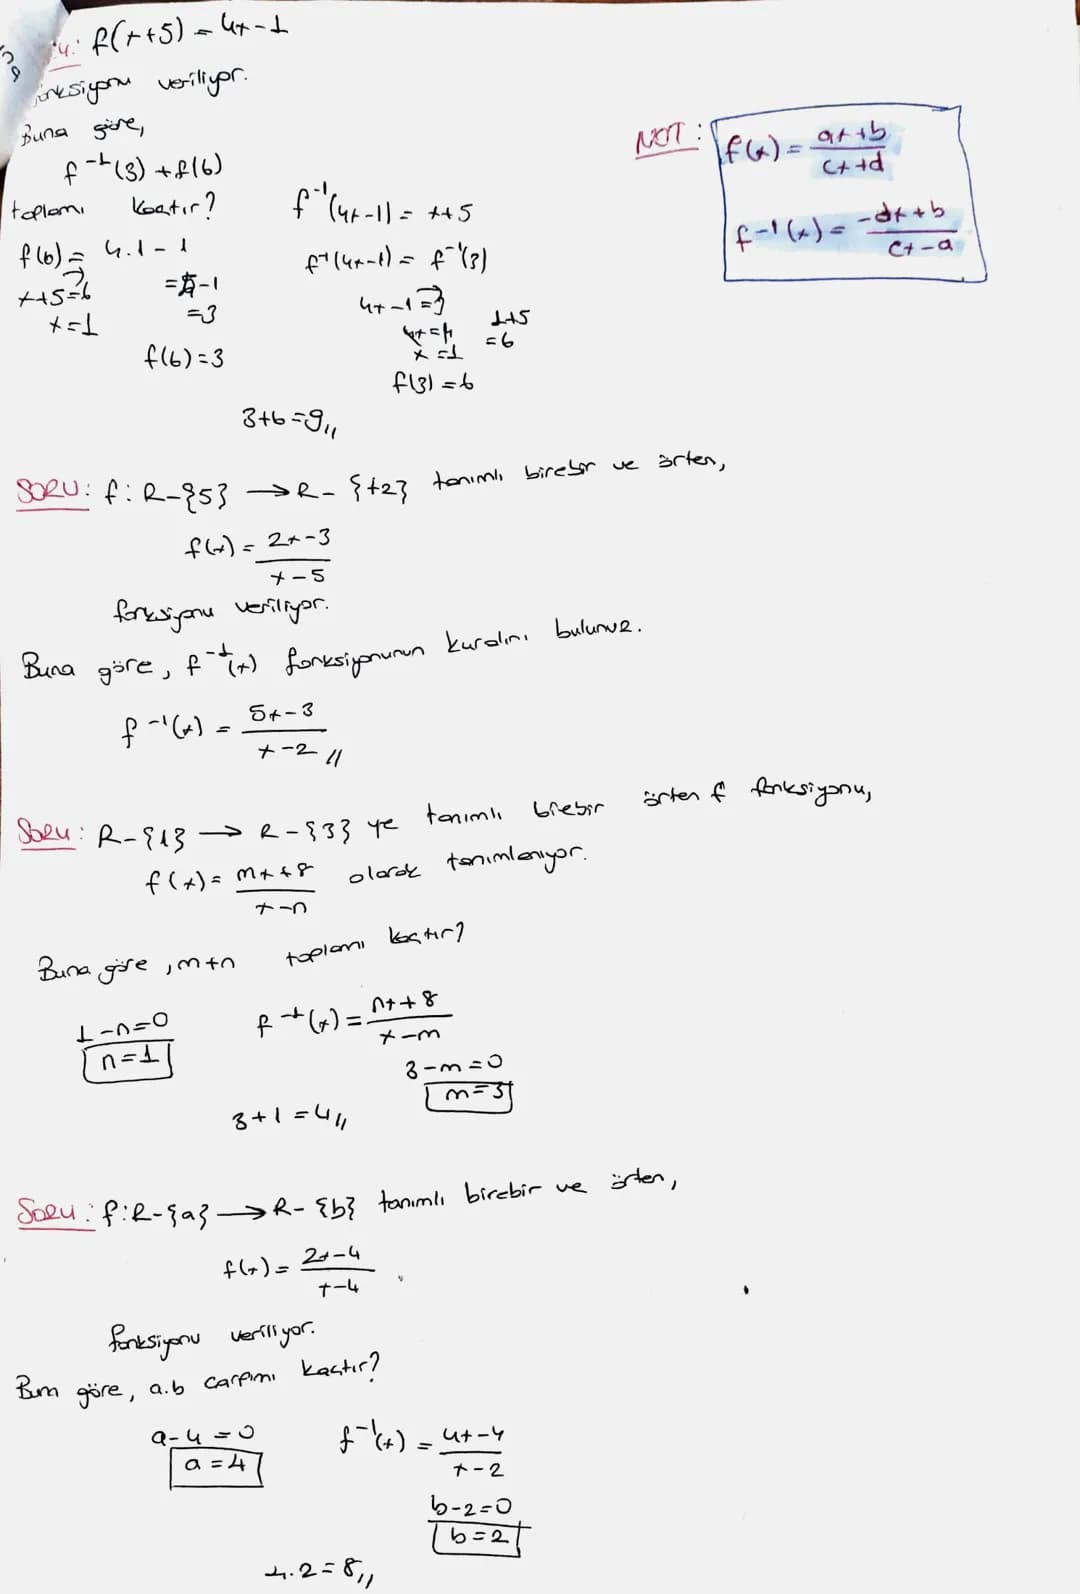 f(x+5) = 4x-1
fonksiyonu veriliyor.
Buna göre,
f⁻¹(3) + f(6)
toplamı kaçtır?
f(6) = 4.1-1
x+5=6
x=1
=4-1
=3
f(6)=3
f⁻¹(4x-1) = x+5
f⁻¹(4x-1) = f⁻¹(3)
4x-1=3
4x=4
x=1
1+5
=6
f(3)=6
3+6=9,,
NOT: f(x) = (ax+b)/(cx+d)
f⁻¹(x) = (-dx+b)/(cx-a)
SORU: f: R-{5} → R-{+2} tanımlı birebir ve örten,
f(x) = (2x-3)/(x-5)
fonksiyonu veriliyor.
Buna göre, f⁻¹(x) fonksiyonunun kuralını bulunuz.
f⁻¹(x) = (5x-3)/(x-2) //
Soru: R-{1} → R-{3} ye tanımlı birebir örten f fonksiyonu,
f(x) = (mx+8)/(x-n) olarak tanımlanıyor.
Buna göre, m+n toplamı kaçtır?
1-n=0
n=1
f⁻¹(x) = (nx+8)/(x-m)
3-m=0
m=3
3+1=4,,
Soru: f:R-{a} → R-{b} tanımlı birebir ve örten,
f(x) = (2x-4)/(x-4)
fonksiyonu veriliyor.
Buna göre, a.b çarpımı kaçtır?
a-4=0
a=4
f⁻¹(x) = (4x-4)/(x-2)
b-2=0
b=2
4.2=8,,